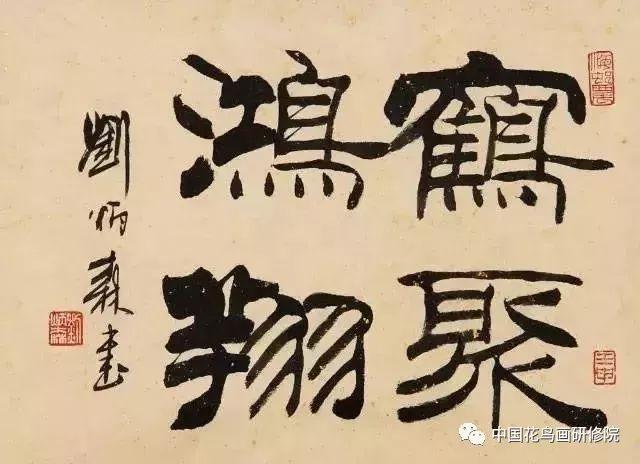 鶴聚
鴻翔
劉炳森書
中国花鸟画研修院